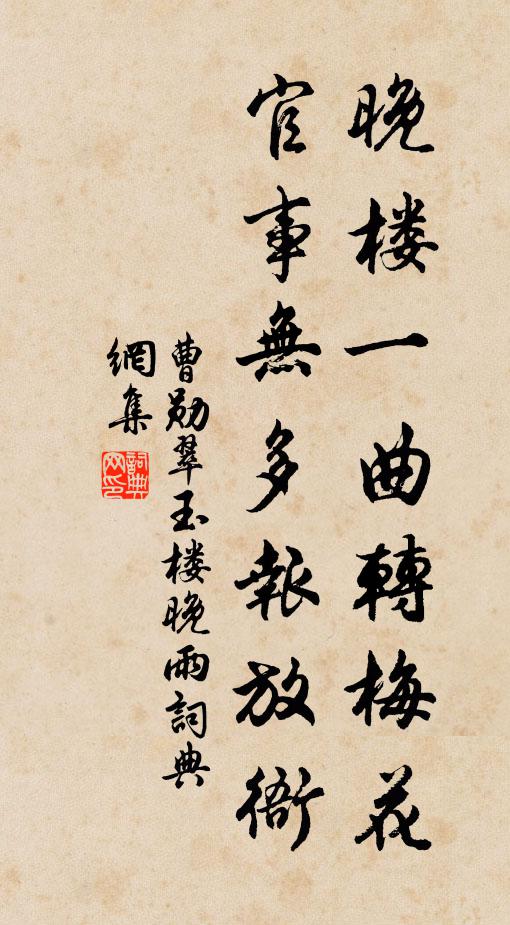 晚楼一曲轉梅花
官事無多報放衙
曹勋翠玉楼晚雨詞典
網集
詞典网印